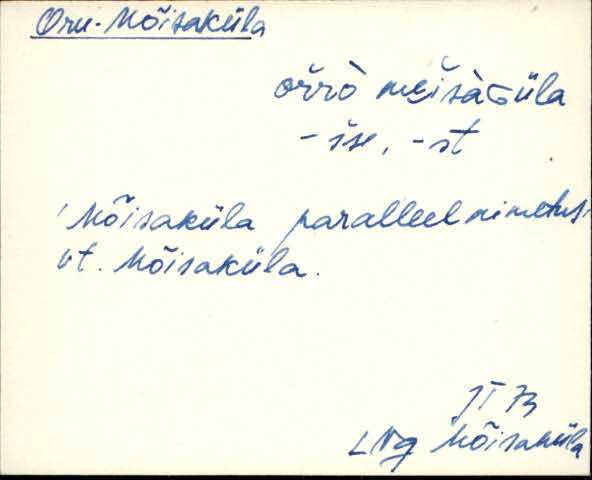 Oru-Mõisaküla
oŕrò mẹišàɢüla
- še, -st
Mõisaküla paralleelnimetus,
vt. Mõisaküla.
73
LNg Mõisaküla